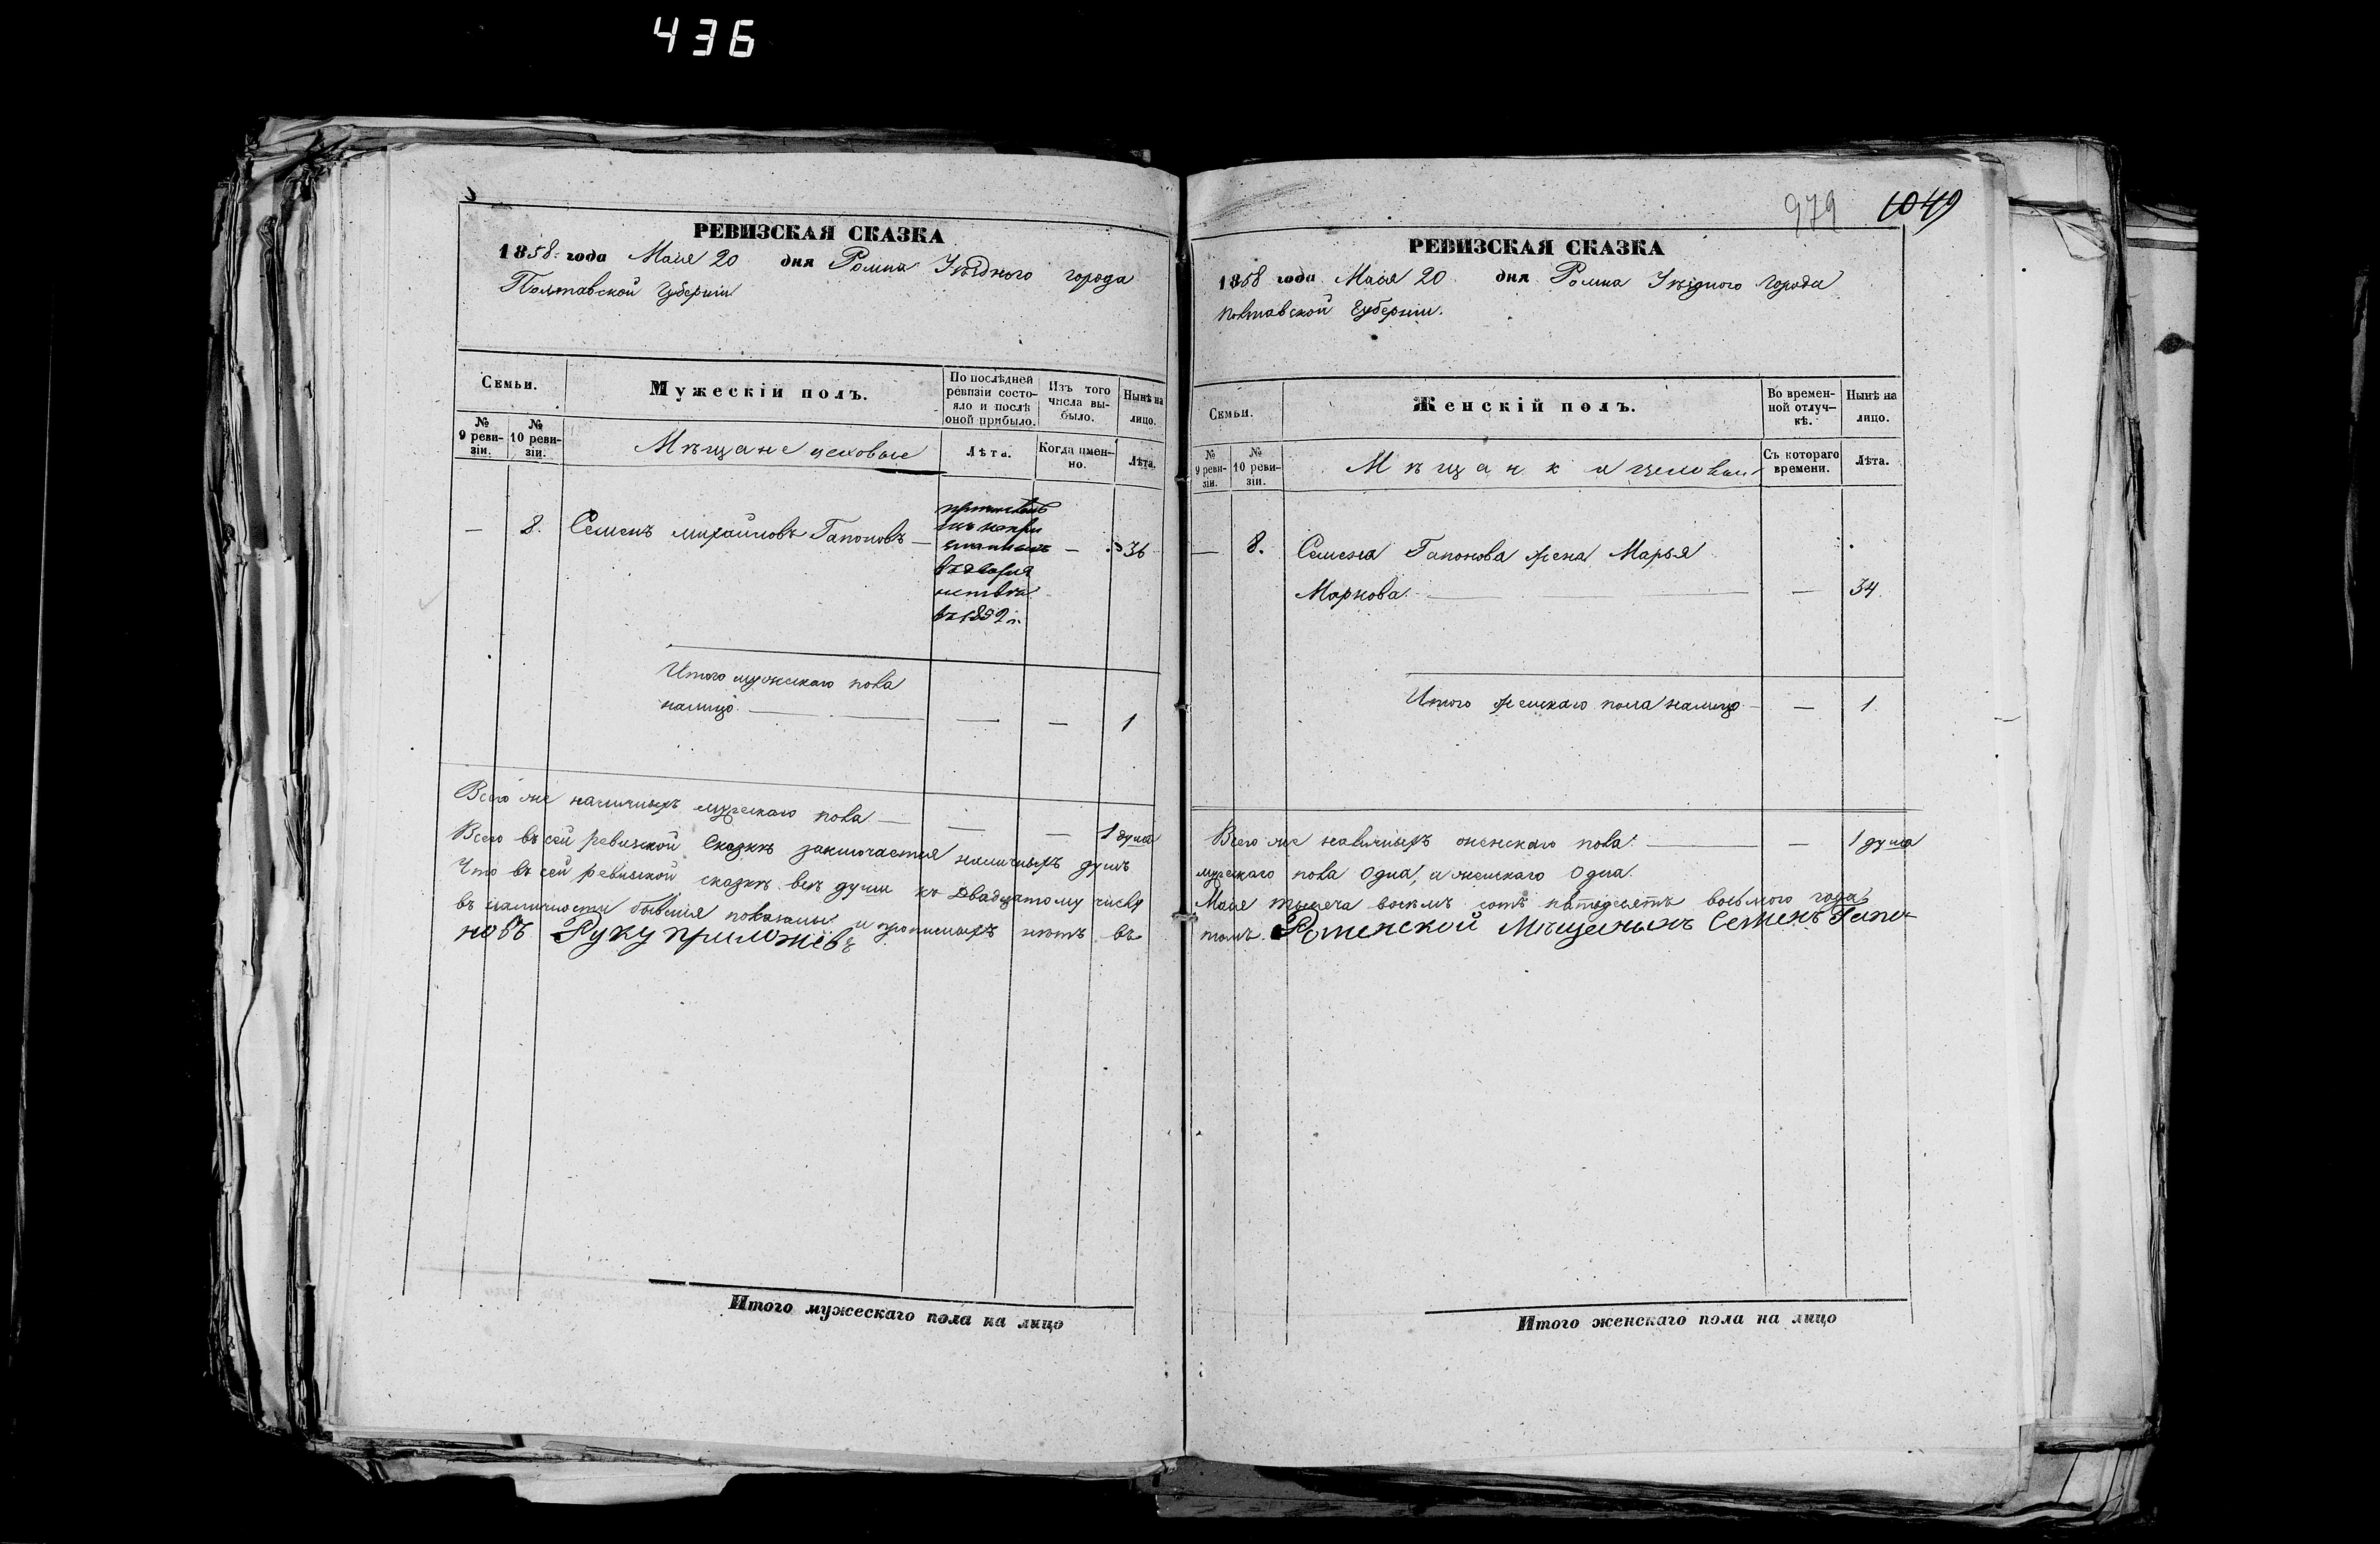 436
РЕВИЗСКАЯ СКАЗКА
1858: года Маія 20 дня Ромна Уѣзднаго города
Полтавской Губерніи
Семьи.
Мужескій полъ.
По послѣдней ревизіи состояло и послѣ оной прибыло.
Изъ того числа выбыло.
Нынѣ на лицо.
№ 9 ревизіи.
№ 10 ревизіи.
Мѣщане цеховые
Лѣта.
Когда именно.
Лѣта.
— 8. Семенъ Михайловъ Гапоновъ — — 36
въ 1852 г.
Итого мужескаго пола
налицо — — — 1
Всего же наличныхъ мужескаго пола — — — 1 душа
Всего въ сей ревизской Сказкѣ заключается наличныхъ душъ
Что въ сей ревизской сказкѣ всѣ души къ двадцатому числу
въ наличности бывшія показаны и прописныхъ нѣтъ въ
новъ Руку приложивъ
Итого мужескаго пола на лицо
979 1049
РЕВИЗСКАЯ СКАЗКА
1858 года Маія 20 дня Ромна Уѣзднаго Города
Полтавской Губерніи.
Семьи.
Женскій полъ.
Во временной отлучкѣ.
Нынѣ на лицо.
№ 9 ревизіи.
№ 10 ревизіи.
Мѣщанки цеховыя
Съ котораго времени.
Лѣта.
— 8. Семена Гапонова жена Марья
Маркова. — — — 34.
Итого женскаго пола налицо — — 1.
Всего же наличныхъ женскаго пола: — — 1 душа
мужскаго пола Одна, а женскаго Одна.
Маія тысяча восемь сотъ пятдесятъ восьмого года
томъ. Роменской Мѣщенынъ Семенъ Гапо-
Итого женскаго пола на лицо